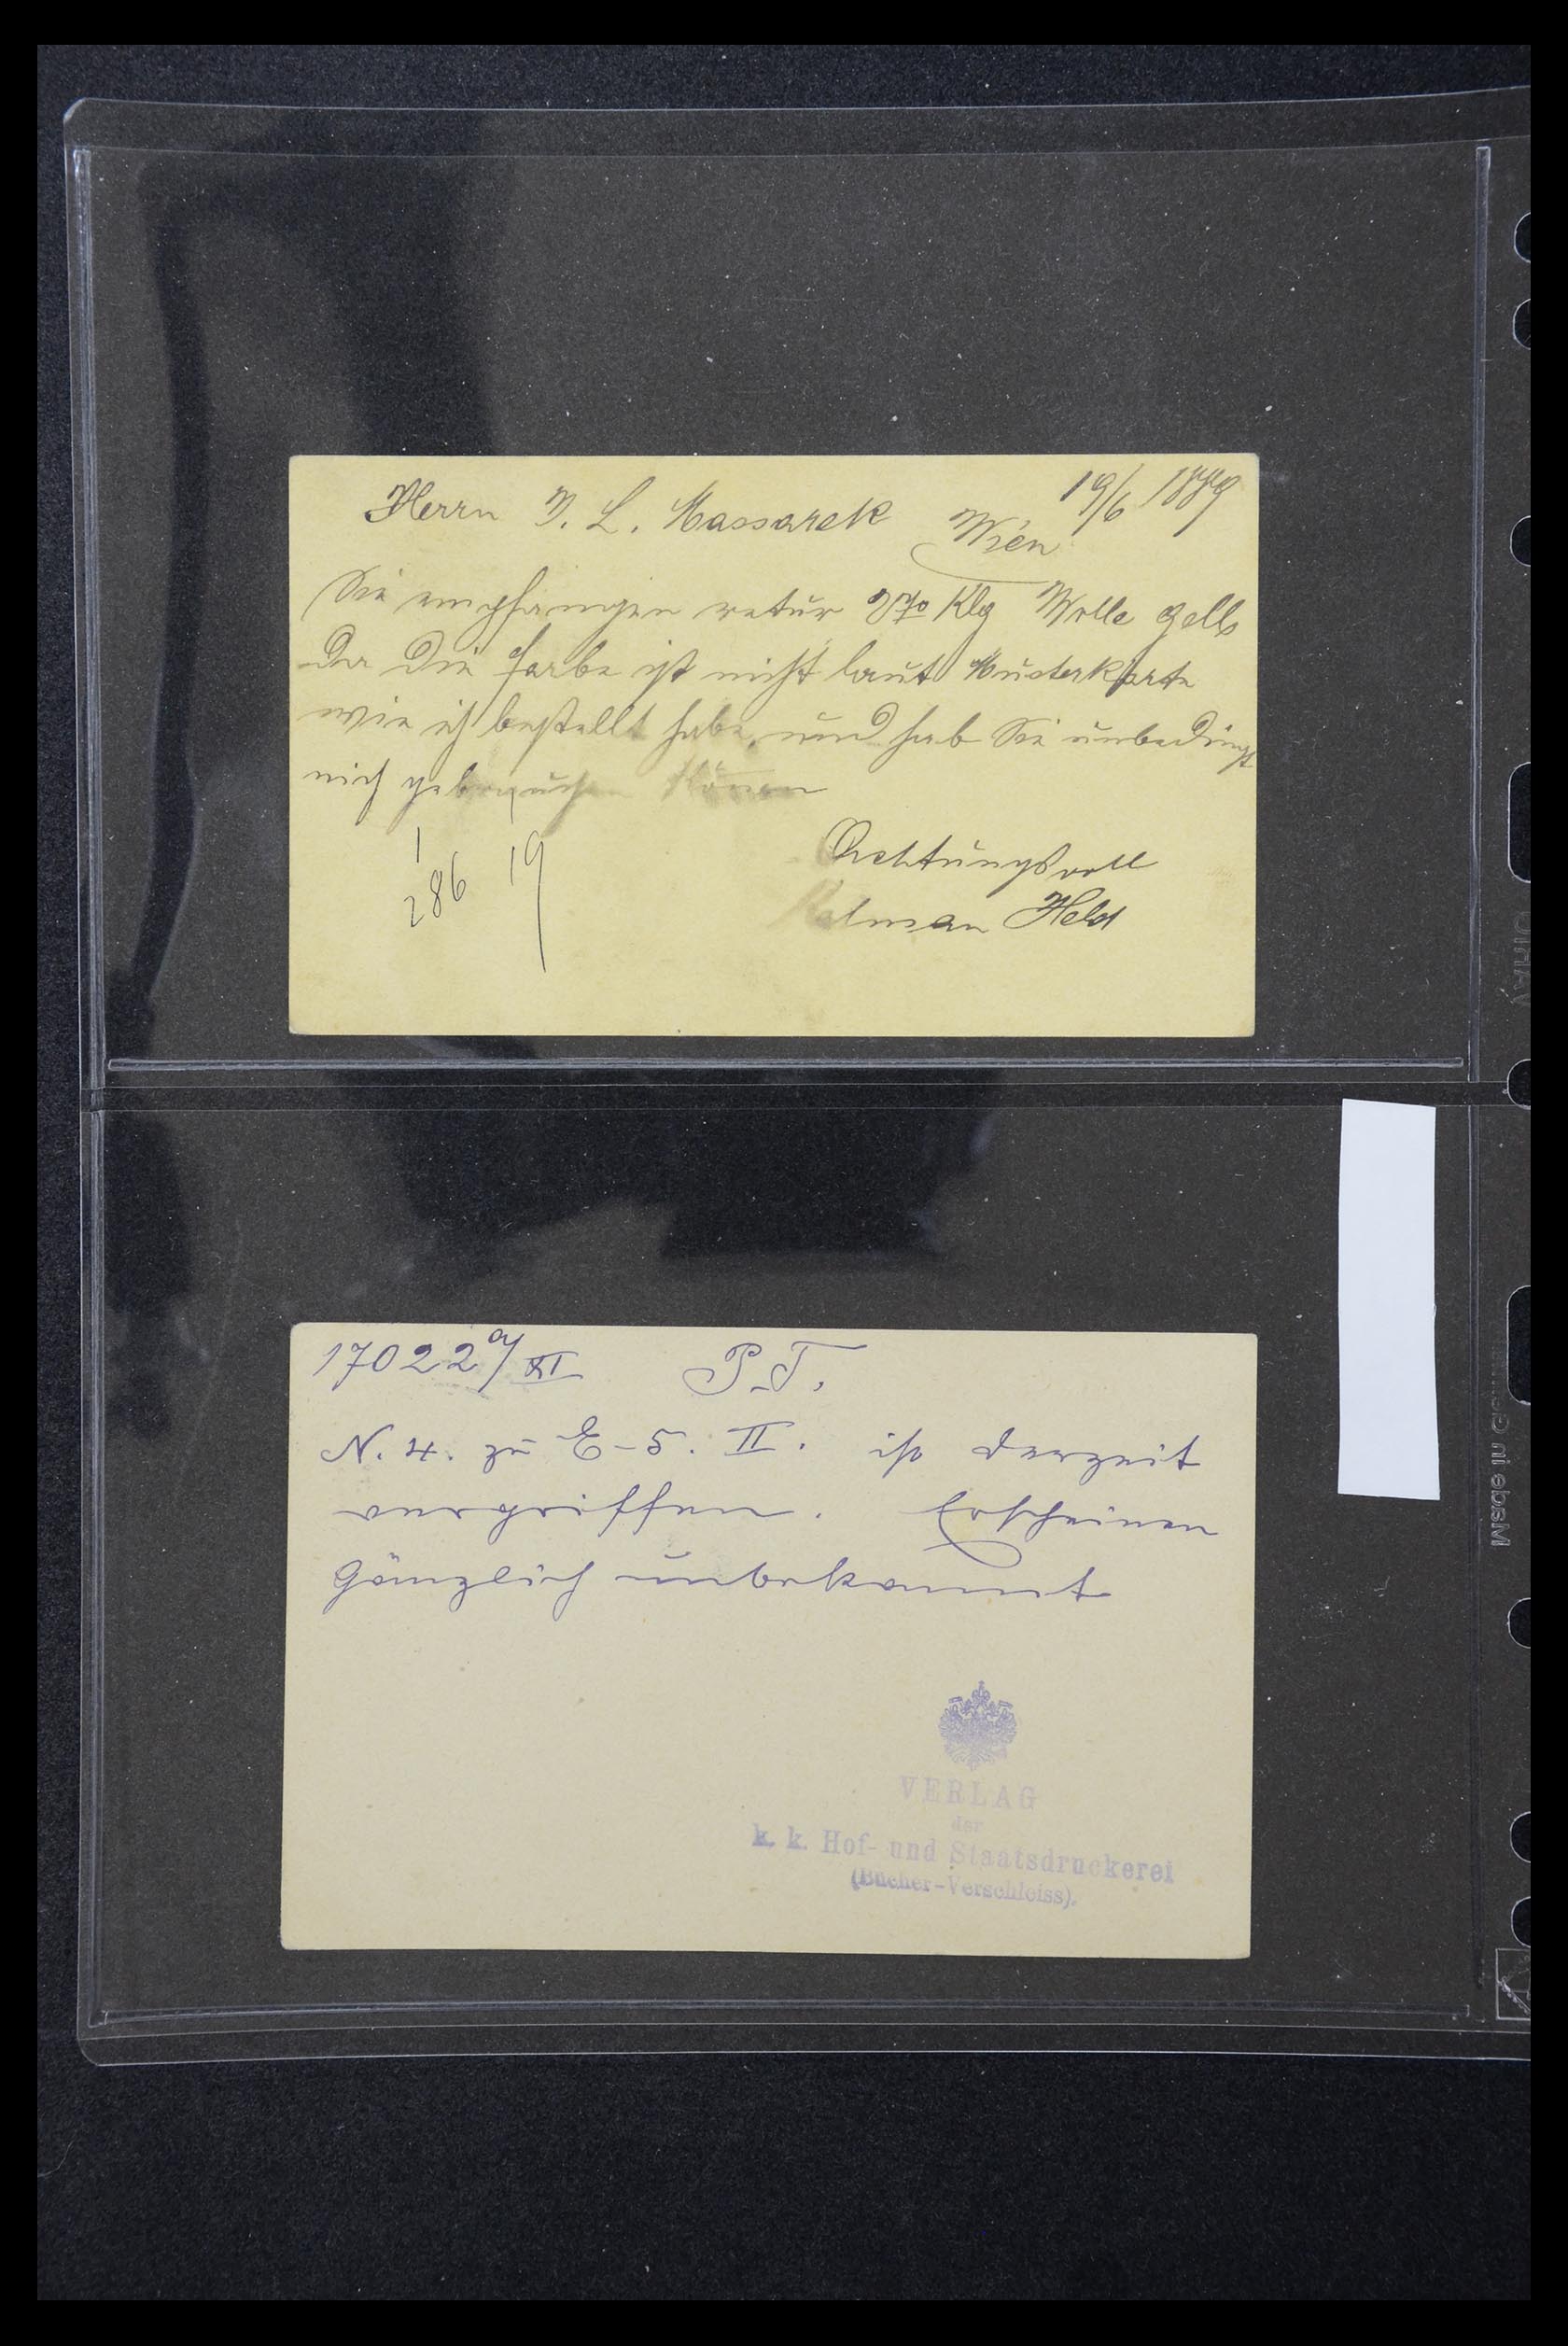 19/6 1879
Herrn J. L. Massarek Wien
Sie empfangen retur Klg Wolle gelb
Da die farbe ist nicht laut Musterkarte
wie ich bestellt habe, und hab Sie unbedingt
nich gebrauchen können
Achtungsvoll
Kalman Held
1
286 19
17022 a/XI P.T.
N. 4. zu E-5. II. ist derzeit
vergriffen. Erscheinen
gänzlich unbekannt
VERLAG
der
k. k. Hof- und Staatsdruckerei
(Bücher-Verschleiss).
Made in Germany